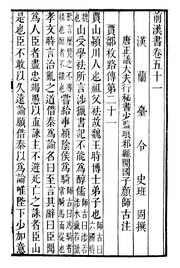 前漢書卷五十一
漢蘭臺令史班固撰
唐正議大夫行祕書少監琅邪縣開國子顏師古注
賈鄒枚路傳第二十一
賈山潁川人也祖父袪故魏王時博士弟子也
山受學袪所言涉獵書記不能為醇儒
嘗給事潁陰侯為騎
孝文時言治亂之道借秦為諭名曰至言其辭曰臣聞
為人臣者盡忠竭愚以直諫主不避死亡之誅者臣山
是也臣不敢以久遠諭願借秦以為諭唯陛下少加意